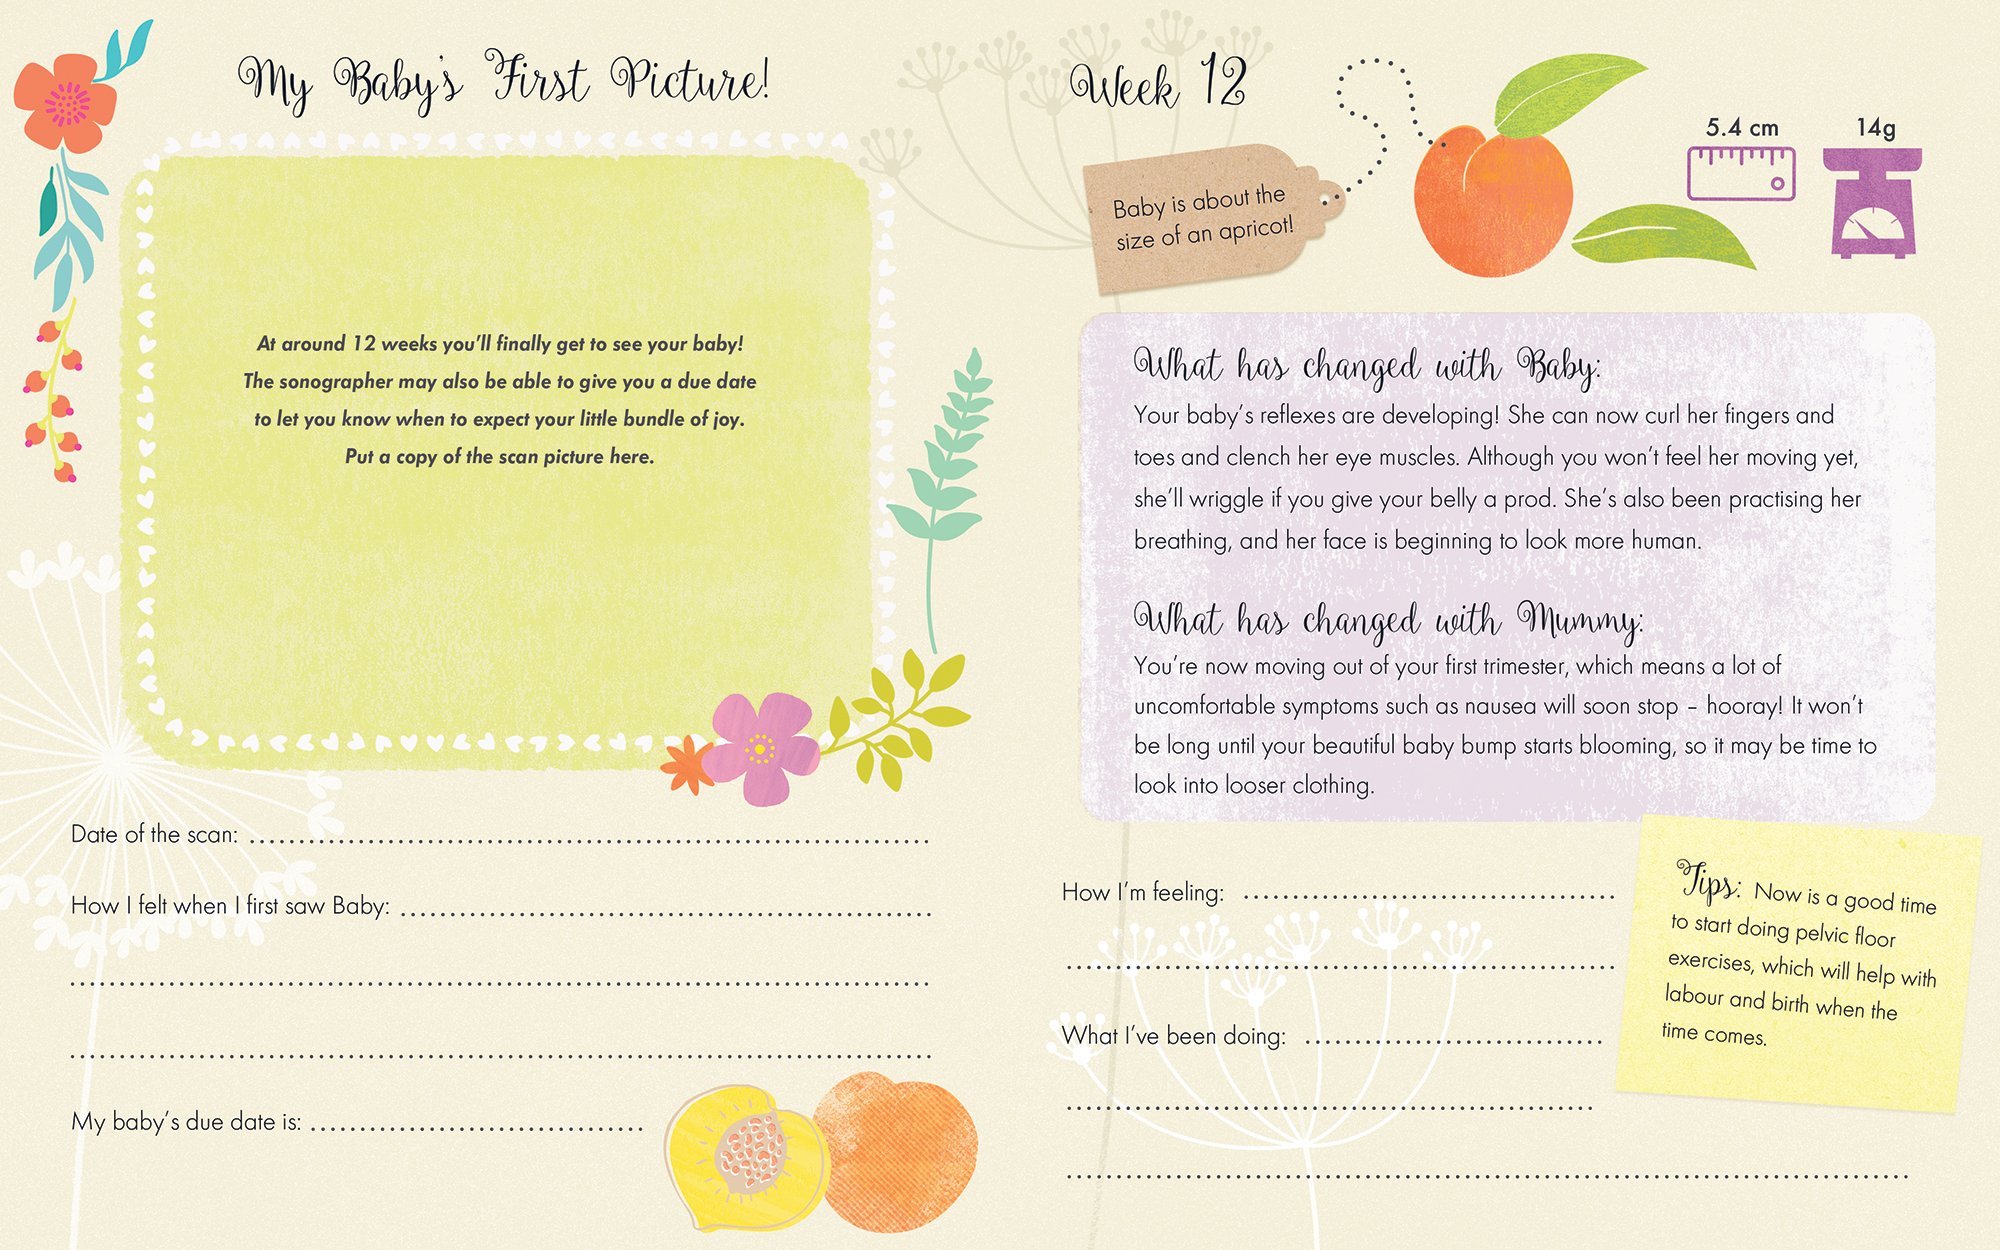 My Baby's First Picture!
At around 12 weeks you'll finally get to see your baby!
The sonographer may also be able to give you a due date
to let you know when to expect your little bundle of joy.
Put a copy of the scan picture here.
Date of the scan:
How I felt when I first saw Baby:
My baby's due date is:
Week 12
Baby is about the
size of an apricot!
5.4 cm
14g
What has changed with Baby:
Your baby's reflexes are developing! She can now curl her fingers and
toes and clench her eye muscles. Although you won't feel her moving yet,
she'll wriggle if you give your belly a prod. She's also been practising her
breathing, and her face is beginning to look more human.
What has changed with Mummy:
You're now moving out of your first trimester, which means a lot of
uncomfortable symptoms such as nausea will soon stop – hooray! It won't
be long until your beautiful baby bump starts blooming, so it may be time to
look into looser clothing.
How I'm feeling:
What I've been doing:
Tips: Now is a good time
to start doing pelvic floor
exercises, which will help with
labour and birth when the
time comes.